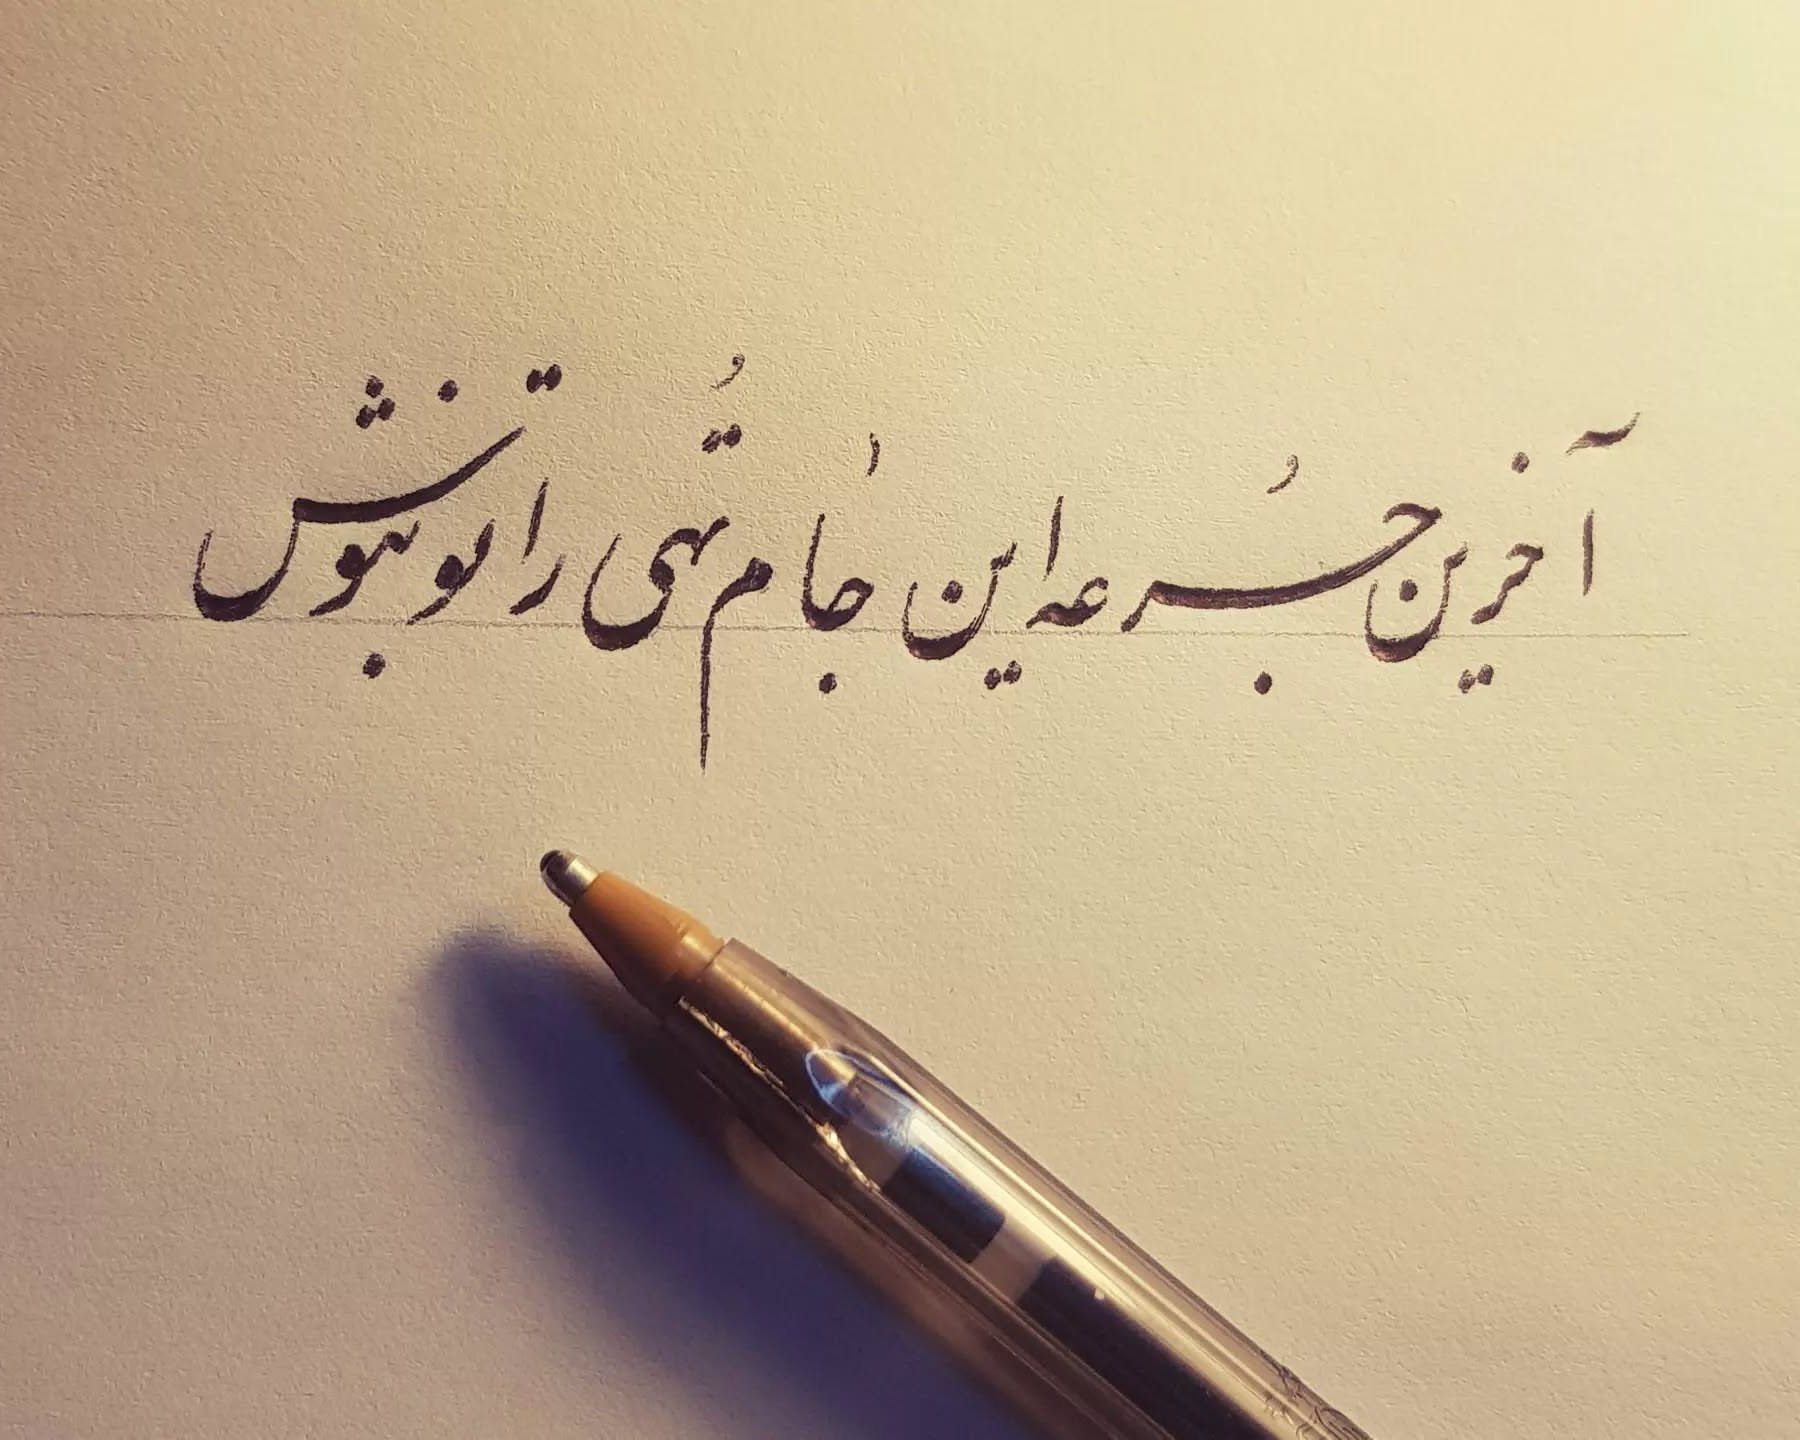 آخرین جُرعه این جام تُهی را تو بنوش